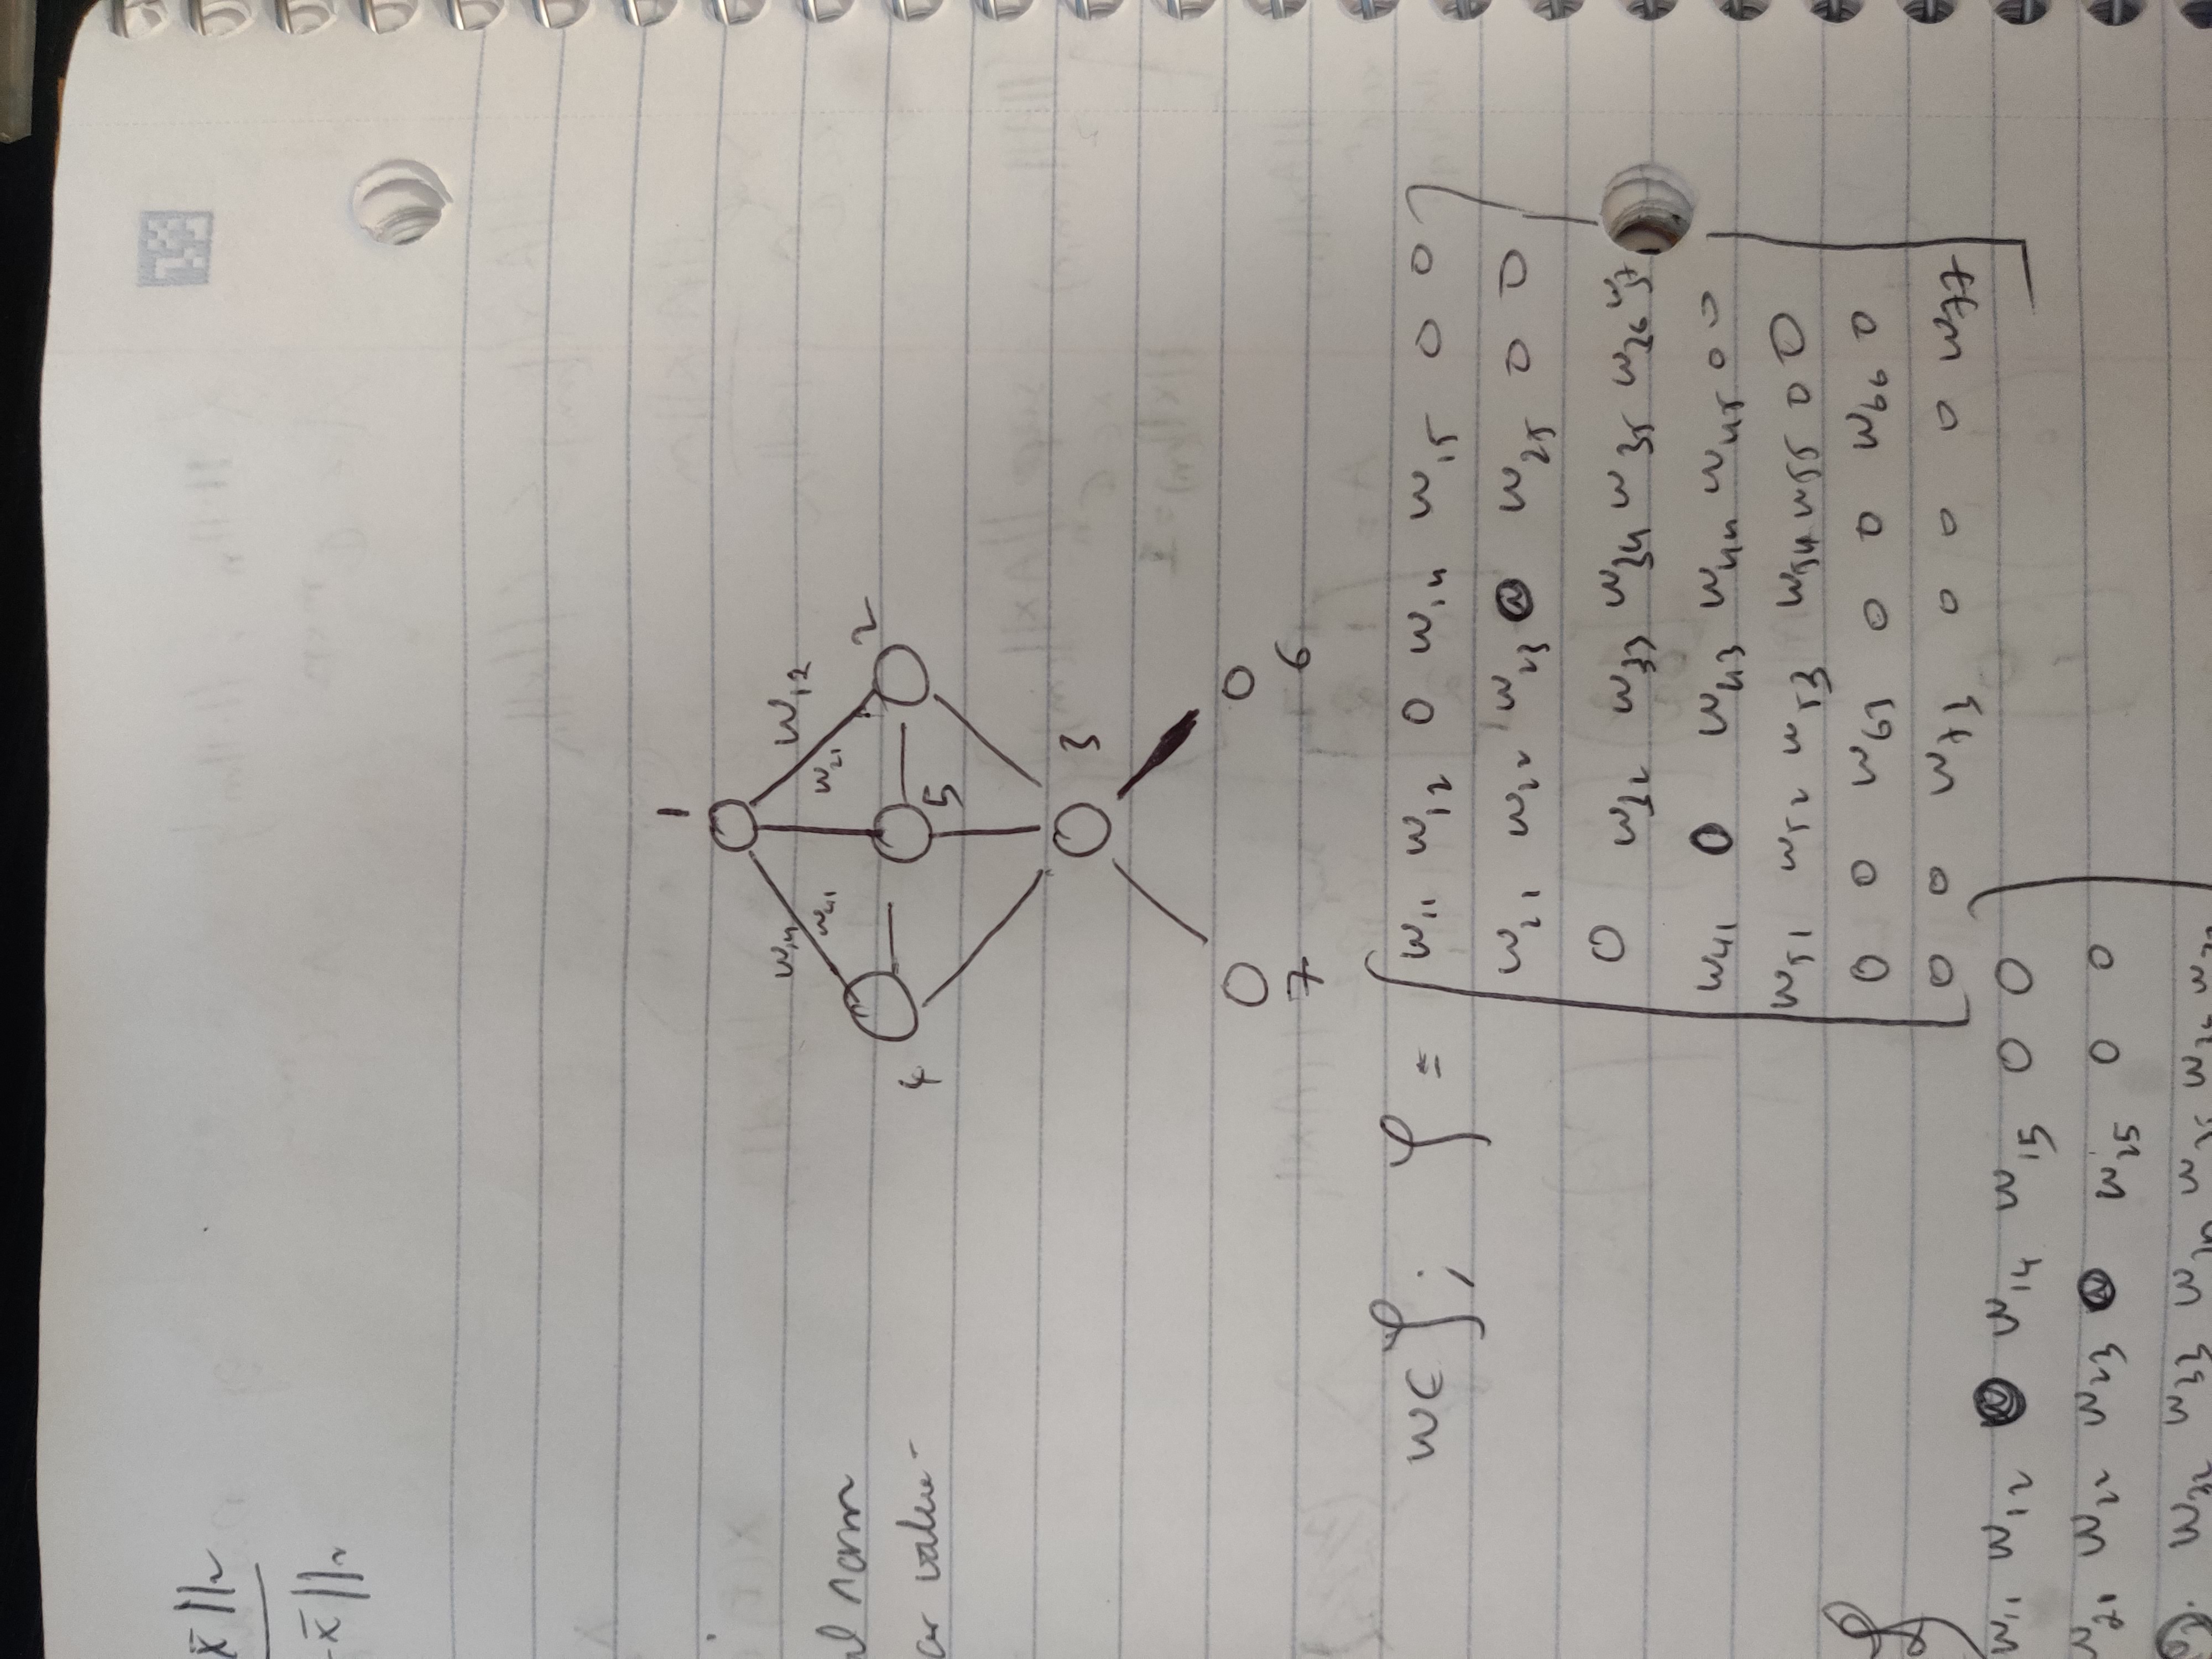 x̄‖₂
-x̄‖₂
norm
value
1
w₁₄ w₁₂
w₄₁ w₂₁
2
4
5
3
7 6
w ∈ 𝒮; 𝒮 =
w₁₁ w₁₂ 0 w₁₄ w₁₅ 0 0
w₂₁ w₂₂ w₂₃ 0 w₂₅ 0 0
0 w₃₂ w₃₃ w₃₄ w₃₅ w₃₆ w₃₇
w₄₁ 0 w₄₃ w₄₄ w₄₅ 0 0
w₅₁ w₅₂ w₅₃ w₅₄ w₅₅ 0 0
0 0 w₆₃ 0 0 w₆₆ 0
0 0 w₇₃ 0 0 0 w₇₇
w₁₁ w₁₂ w₁₄ w₁₅ 0 0
w₂₁ w₂₂ w₂₃ w₂₅ 0 0
w₃₂ w₃₃